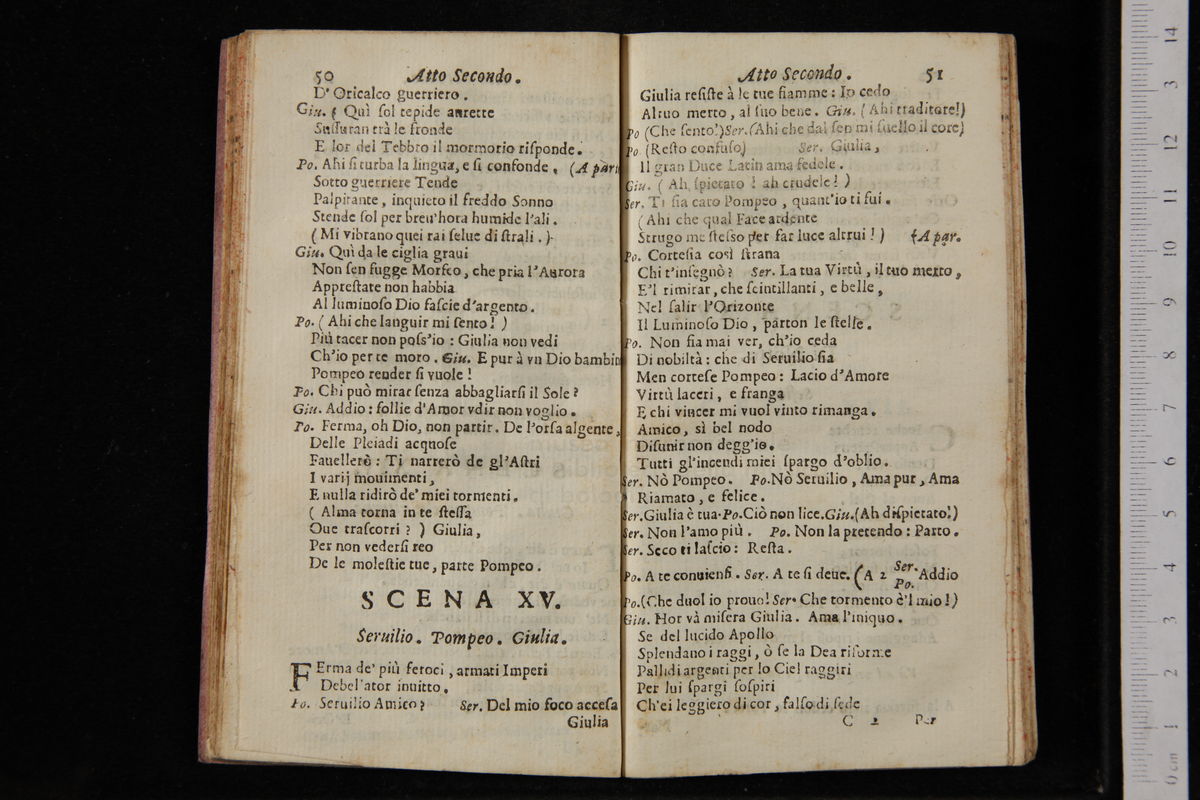 50 Atto Secondo.
D' Oricalco guerriero.
Giu. ( Quì ſol tepide aurette
Suſſuran trà le fronde
E lor del Tebbro il mormorio riſponde.
Po. Ahi ſi turba la lingua, e ſi confonde, (A par
Sotto guerriere Tende
Palpitante, inquieto il freddo Sonno
Stende ſol per breu'hora humide l'ali.
(Mi vibrano quei rai ſelue di ſtrali.)
Giu. Quì da le ciglia graui
Non ſen fugge Morfeo, che pria l'Aurora
Appreſtate non habbia
Al luminoſo Dio faſcie d'argento.
Po. (Ahi che languir mi ſento! )
Più tacer non poſs'io: Giulia non vedi
Ch'io per te moro. Giu. E pur à vn Dio bambin
Pompeo render ſi vuole!
Po. Chi può mirar ſenza abbagliarſi il Sole?
Giu. Addio: follie d'Amor vdir non voglio.
Po. Ferma, oh Dio, non partir. De l'orſa algente,
Delle Pleiadi acquoſe
Fauellerò: Ti narrerò de gl'Aſtri
I varij mouimenti,
E nulla ridirò de' miei tormenti.
( Alma torna in te ſteſſa
Oue traſcorri? ) Giulia,
Per non vederſi reo
De le moleſtie tue, parte Pompeo.
SCENA XV.
Seruilio. Pompeo. Giulia.
FErma de' più feroci, armati Imperi
Debellator inuitto.
Po. Seruilio Amico? Ser. Del mio foco acceſa
Giulia
Atto Secondo. 51
Giulia reſiſte à le tue fiamme: Io cedo
Al tuo merto, al ſuo bene. Giu. (Ahi traditore!)
Po (Che ſento!) Ser. (Ahi che dal ſen mi ſuello il core)
Po. (Reſto confuſo) Ser. Giulia,
Il gran Duce Latin ama fedele.
Giu. ( Ah, ſpietato! ah crudele! )
Ser. Ti ſia caro Pompeo, quant'io ti fui.
(Ahi che qual Face ardente
Strugo me ſteſso per far luce altrui!) (A par.
Po. Corteſia così ſtrana
Chi t'inſegnò? Ser. La tua Virtù, il tuo merto,
E'l rimirar, che ſcintillanti, e belle,
Nel ſalir l'Orizonte
Il Luminoſo Dio, parton le ſtelle.
Po. Non fia mai ver, ch'io ceda
Di nobiltà: che di Seruilio ſia
Men corteſe Pompeo: Lacio d'Amore
Virtù laceri, e franga
E chi vincer mi vuol vinto rimanga.
Amico, sì bel nodo
Diſunir non degg'io.
Tutti gl'incendi miei ſpargo d'oblio.
Ser. Nò Pompeo. Po. Nò Seruilio, Ama pur, Ama
Riamato, e felice.
Ser. Giulia è tua. Po. Ciò non lice. Giu. (Ah diſpietato!)
Ser. Non l'amo più. Po. Non la pretendo: Parto.
Ser. Seco ti laſcio: Reſta.
Po. A te conuienſi. Ser. A te ſi deue. (A 2 Ser. Po. Addio
Po. (Che duol io prouo! Ser. Che tormento è'l mio!)
Giu. Hor và miſera Giulia. Ama l'iniquo.
Se del lucido Apollo
Splendano i raggi, ò ſe la Dea riforme
Pallidi argenti per lo Ciel raggiri
Per lui ſpargi ſoſpiri
Ch'ei leggiero di cor, falſo di fede
C 2 Per
0 cm 1 2 3 4 5 6 7 8 9 10 11 12 13 14